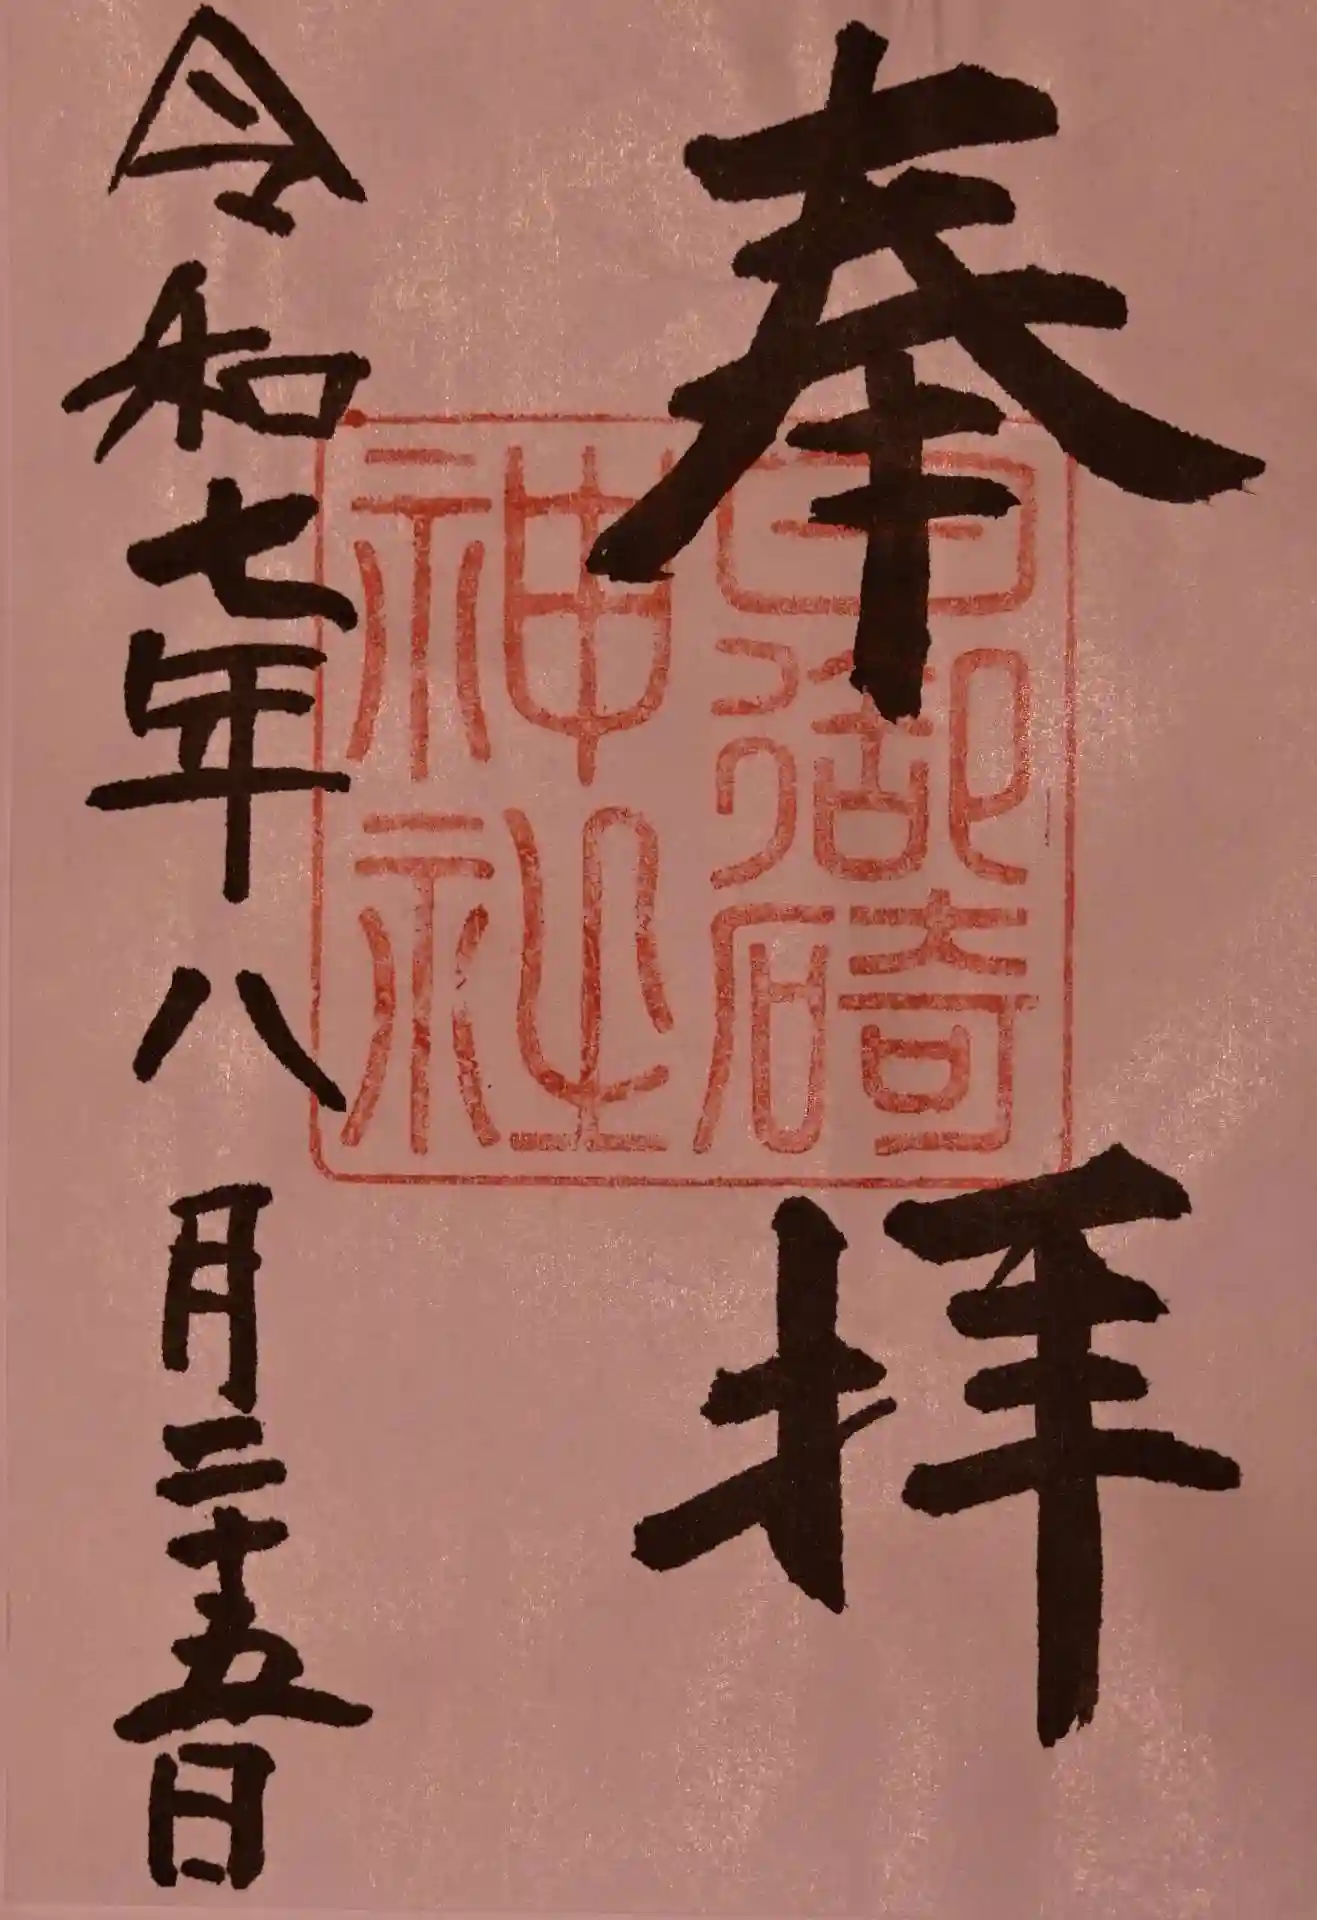 奉拝
日御碕
神社
令和七年八月二十五日